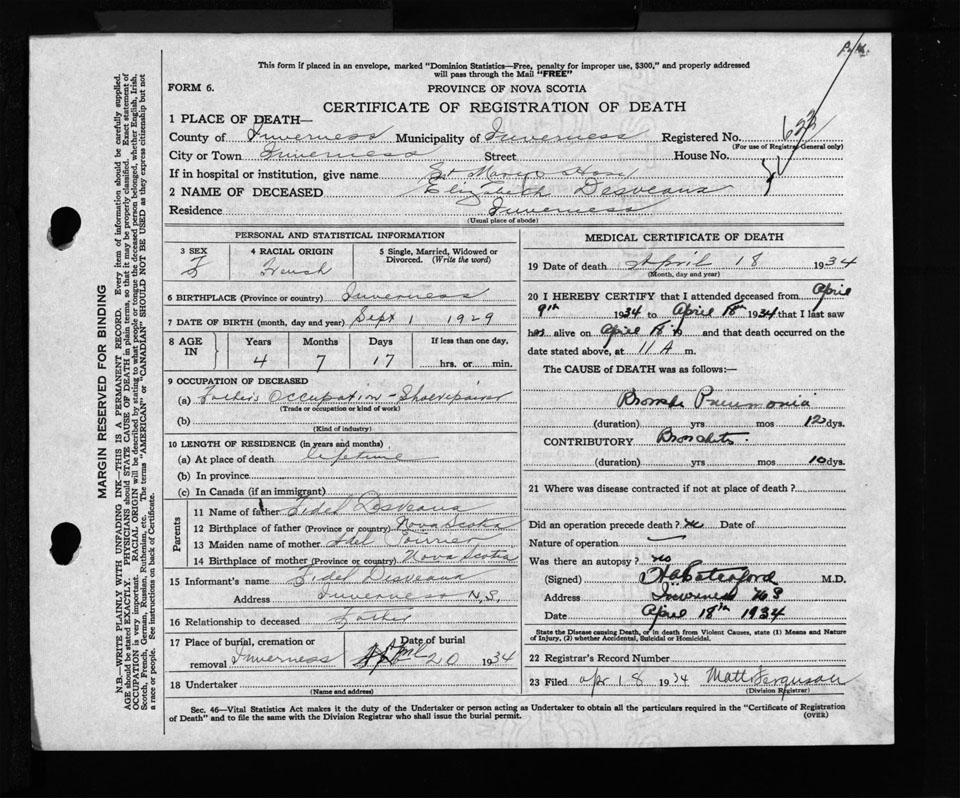 This form if placed in an envelope, marked "Dominion Statistics—Free, penalty for improper use, $300," and properly addressed
will pass through the Mail "FREE"
FORM 6.
PROVINCE OF NOVA SCOTIA
CERTIFICATE OF REGISTRATION OF DEATH
1 PLACE OF DEATH—
County of Inverness Municipality of Inverness Registered No.
(For use of Registrar-General only)
City or Town Inverness Street House No.
If in hospital or institution, give name St Marys Hosp
2 NAME OF DECEASED Elizabeth Desveaux
Residence Inverness
(Usual place of abode)
PERSONAL AND STATISTICAL INFORMATION
3 SEX 4 RACIAL ORIGIN 5 Single, Married, Widowed or
Divorced. (Write the word)
F French
6 BIRTHPLACE (Province or country) Inverness
7 DATE OF BIRTH (month, day and year) Sept 1 1929
8 AGE IN Years Months Days If less than one day,
4 7 17 hrs. or min.
9 OCCUPATION OF DECEASED
(a) Father's Occupation - Shoerepairer
(Trade or occupation or kind of work)
(b)
(Kind of industry)
10 LENGTH OF RESIDENCE (in years and months)
(a) At place of death lifetime
(b) In province
(c) In Canada (if an immigrant)
Parents
11 Name of father Fidel Desveaux
12 Birthplace of father (Province or country) Nova Scotia
13 Maiden name of mother Adel Poirier
14 Birthplace of mother (Province or country) Nova Scotia
15 Informant's name Fidel Desveaux
Address Inverness N.S.
16 Relationship to deceased Father
17 Place of burial, cremation or Date of burial
removal Inverness April 20 1934
18 Undertaker
(Name and address)
MEDICAL CERTIFICATE OF DEATH
19 Date of death April 18 1934
(Month, day and year)
20 I HEREBY CERTIFY that I attended deceased from April
9th 1934 to April 18th 1934 that I last saw
h alive on April 18th 19 and that death occurred on
date stated above, at 11 A m.
The CAUSE of DEATH was as follows:—
Broncho Pneumonia
(duration) yrs mos 12 dys.
CONTRIBUTORY Bronchitis
(duration) yrs mos 10 dys.
21 Where was disease contracted if not at place of death?
Did an operation precede death? no Date of
Nature of operation
Was there an autopsy? no
(Signed) M.D.
Address Inverness N S
Date April 18th 1934
State the Disease causing Death, or in death from Violent Causes, state (1) Means and Nature
of Injury, (2) whether Accidental, Suicidal or Homicidal.
22 Registrar's Record Number
23 Filed apr 18 1934 Matt Ferguson
(Division Registrar)
Sec. 46—Vital Statistics Act makes it the duty of the Undertaker or person acting as Undertaker to obtain all the particulars required in the "Certificate of Registration
of Death" and to file the same with the Division Registrar who shall issue the burial permit. (OVER)
MARGIN RESERVED FOR BINDING
N.B.—WRITE PLAINLY WITH UNFADING INK—THIS IS A PERMANENT RECORD. Every item of information should be carefully supplied.
AGE should be stated EXACTLY. PHYSICIANS should STATE CAUSE OF DEATH in plain terms, so that it may be properly classified. Exact statement of
OCCUPATION is very important. RACIAL ORIGIN will be described by stating to what people or tongue the deceased person belonged, whether English, Irish,
Scotch, French, German, Russian, Ruthenian, etc. The terms "AMERICAN" or "CANADIAN" SHOULD NOT BE USED as they express citizenship but not
a race or people. See instructions on back of Certificate.